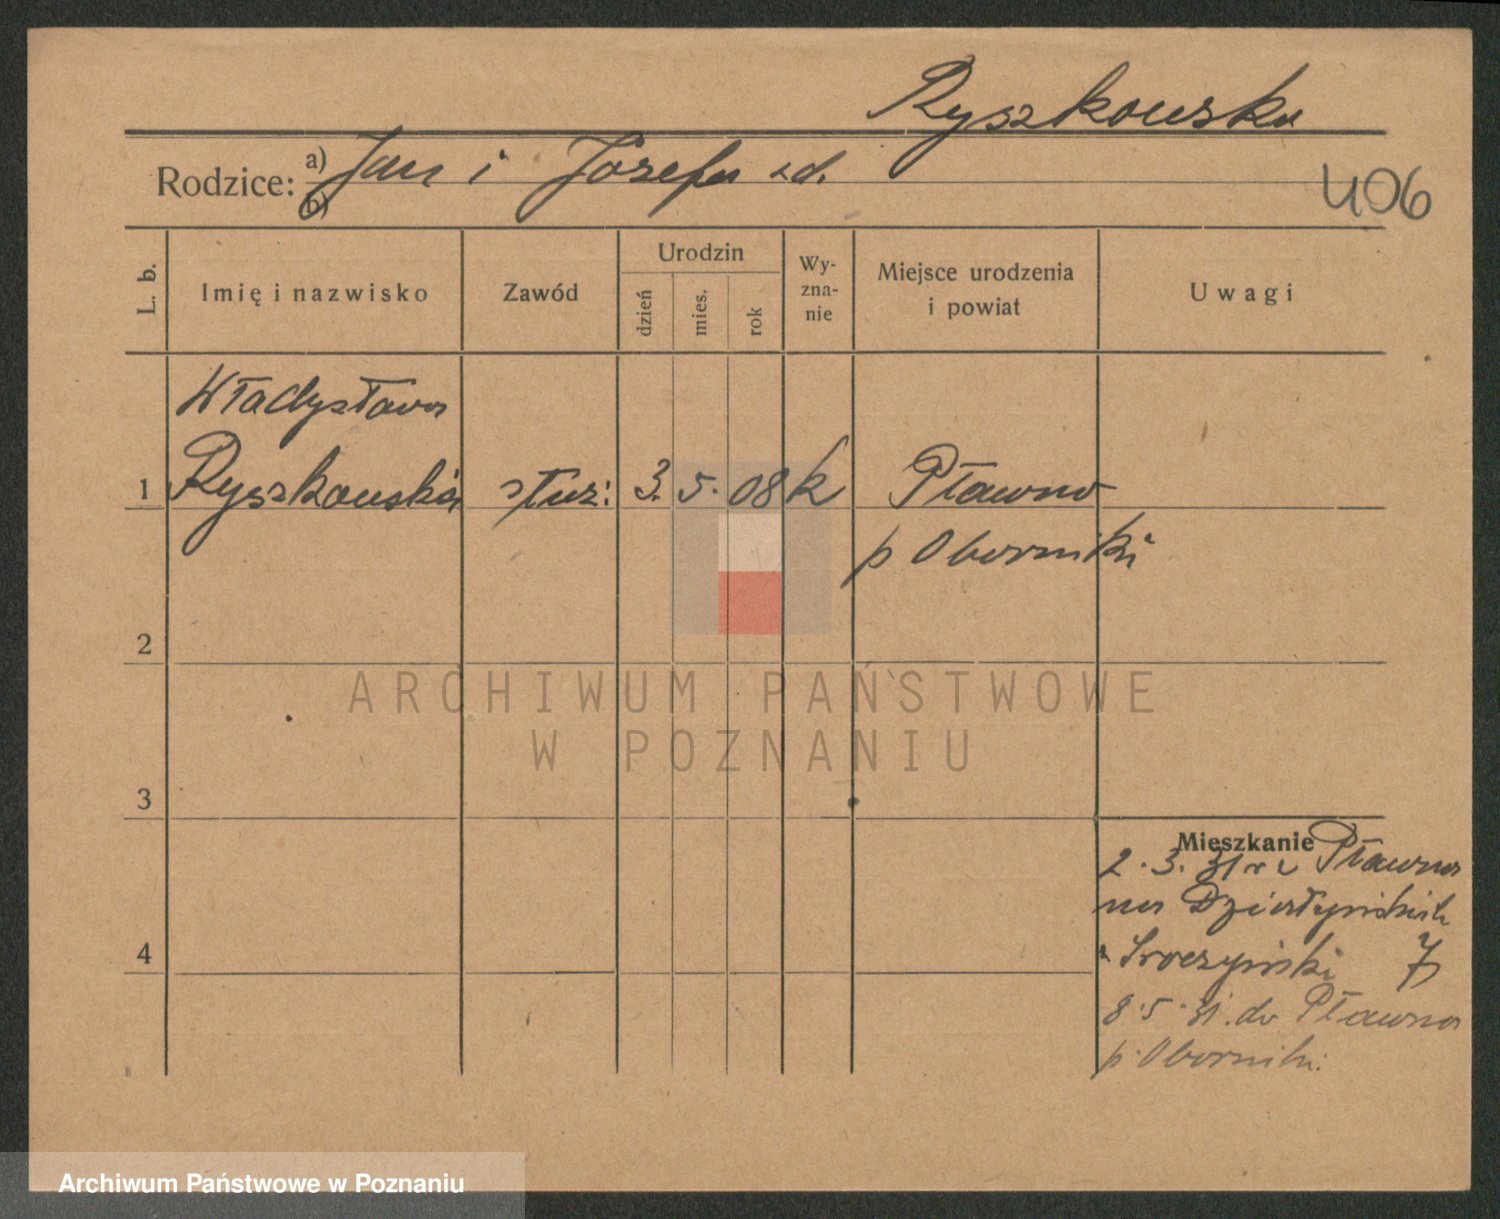 Ryszkowska
Rodzice: a) Jan i Józefa zd.
b)
406
L. b.
Imię i nazwisko
Zawód
Urodzin
dzień
mies.
rok
Wy-
zna-
nie
Miejsce urodzenia
i powiat
Uwagi
Władysława
1 Ryszkowska służ: 3. 5. 08 k Pławno
p Oborniki
2
3
4
Mieszkanie
2.3.31 r z Pławna
na Działyńskich
Sroczyński 7
8.5.31. do Pławna
p. Oborniki.
ARCHIWUM PAŃSTWOWE
W POZNANIU
Archiwum Państwowe w Poznaniu